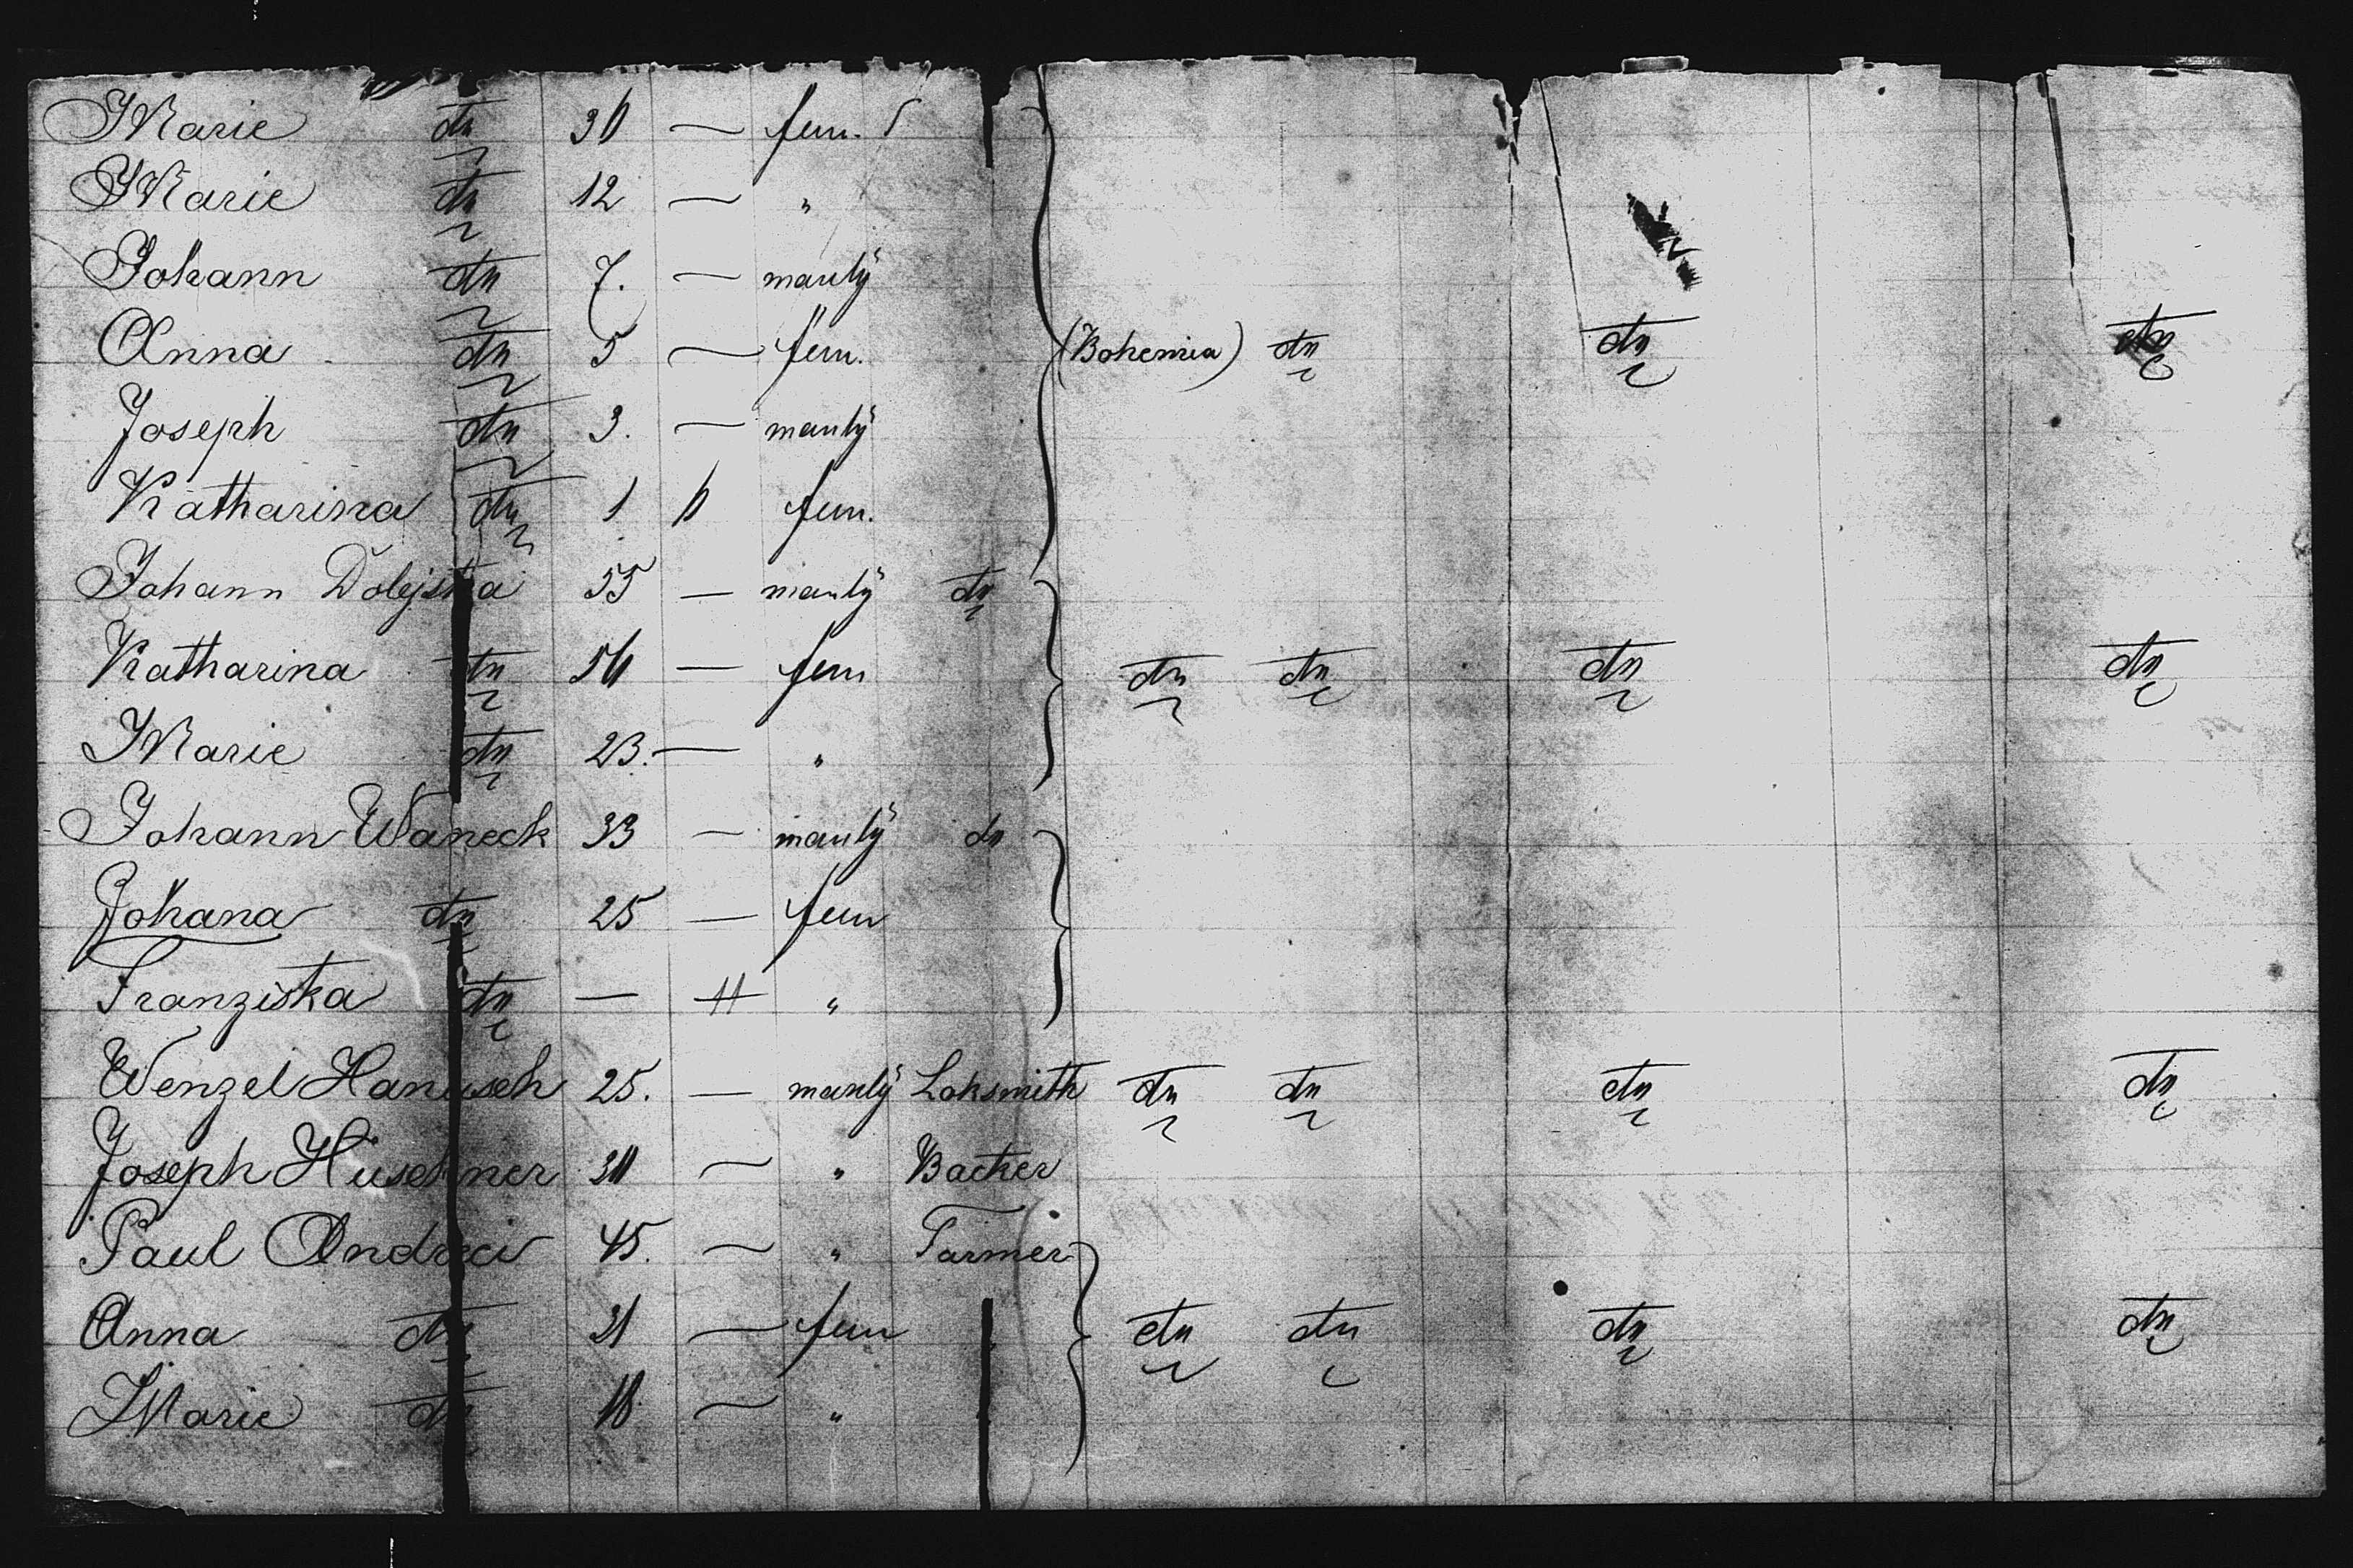 Marie do 36 — fem.
Marie do 12 — "
Johann do 7. — manly
Anna do 5 — fem. (Bohemia) do do do
Joseph do 3. — manly
Katharina do 1 6 fem.
Johann Dolejska 55 — manly do
Katharina do 56 — fem do do do do
Marie do 23. — "
Johann Waneck 33 — manly do
Johana do 25 — fem
Franziska do — 11 "
Wenzel Hanusch 25. — manly Loksmith do do do do
Joseph Huschner — " Backer
Paul 45. — " Farmer
Anna do — fem do do do do
Marie do 18. — "